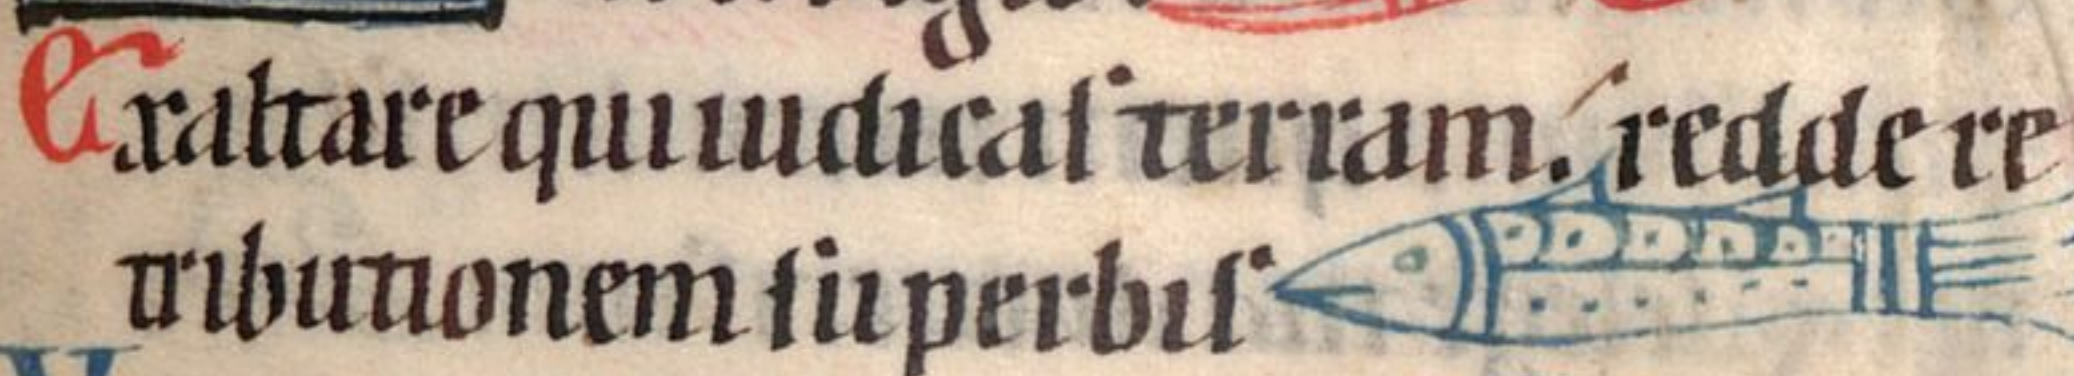 Exaltare qui iudicas terram. redde re
tributionem superbis